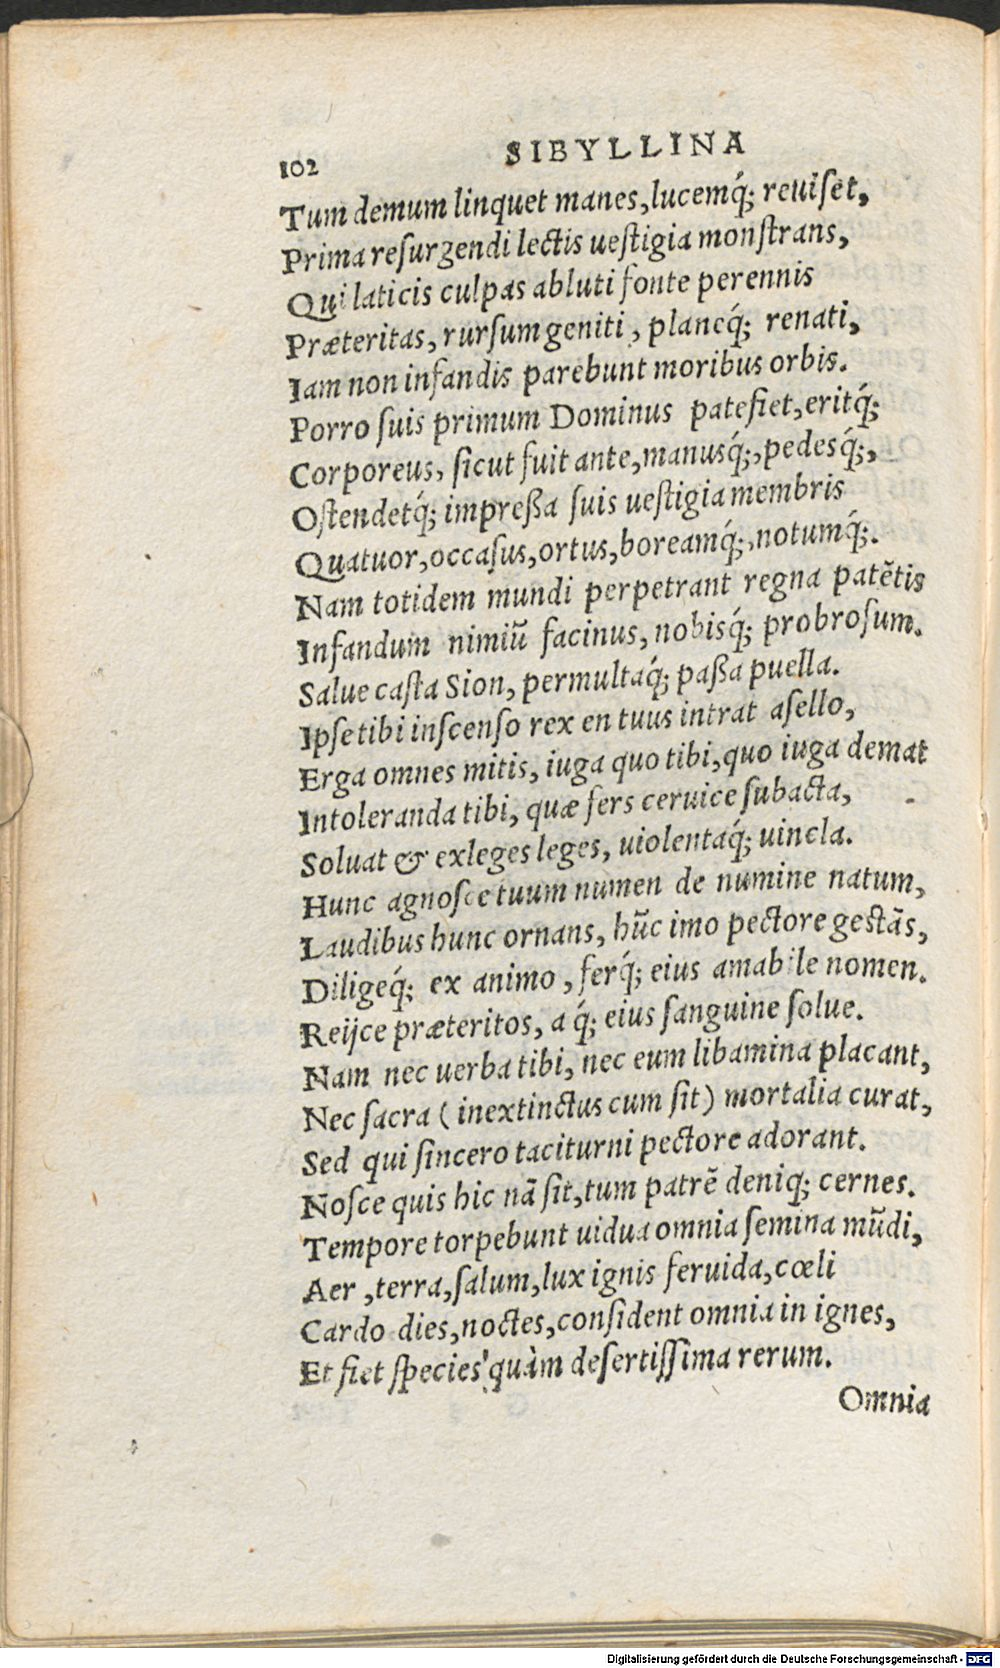 102 SIBYLLINA
Tum demum linquet manes, lucemq́; reuiſet,
Prima reſurgendi lectis ueſtigia monſtrans,
Qui laticis culpas abluti fonte perennis
Præteritas, rurſum geniti, planeq́; renati,
Iam non infandis parebunt moribus orbis.
Porro ſuis primum Dominus patefiet, eritq́;
Corporeus, ſicut fuit ante, manusq́;, pedesq́;,
Oſtendetq́; impreßa ſuis ueſtigia membris
Quatuor, occaſus, ortus, boreamq́;, notumq́;.
Nam totidem mundi perpetrant regna patẽtis
Infandum nimiũ facinus, nobisq́; probroſum.
Salue caſta Sion, permultaq́; paßa puella.
Ipſe tibi inſcenſo rex en tuus intrat aſello,
Erga omnes mitis, iuga quo tibi, quo iuga demat
Intoleranda tibi, quæ fers ceruice ſubacta,
Soluat & exleges leges, uiolentaq́; uincla.
Hunc agnoſce tuum numen de numine natum,
Laudibus hunc ornans, hũc imo pectore geſtãs,
Diligeq́; ex animo, ferq́; eius amabile nomen.
Reijce præteritos, a q́; eius ſanguine ſolue.
Nam nec uerba tibi, nec eum libamina placant,
Nec ſacra (inextinctus cum ſit) mortalia curat,
Sed qui ſincero taciturni pectore adorant.
Noſce quis hic nã ſit, tum patrẽ deniq; cernes.
Tempore torpebunt uidua omnia ſemina mũdi,
Aer, terra, ſalum, lux ignis feruida, cœli
Cardo dies, noctes, conſident omnia in ignes,
Et fiet ſpecies quàm deſertiſſima rerum.
Omnia
Digitalisierung gefördert durch die Deutsche Forschungsgemeinschaft - DFG